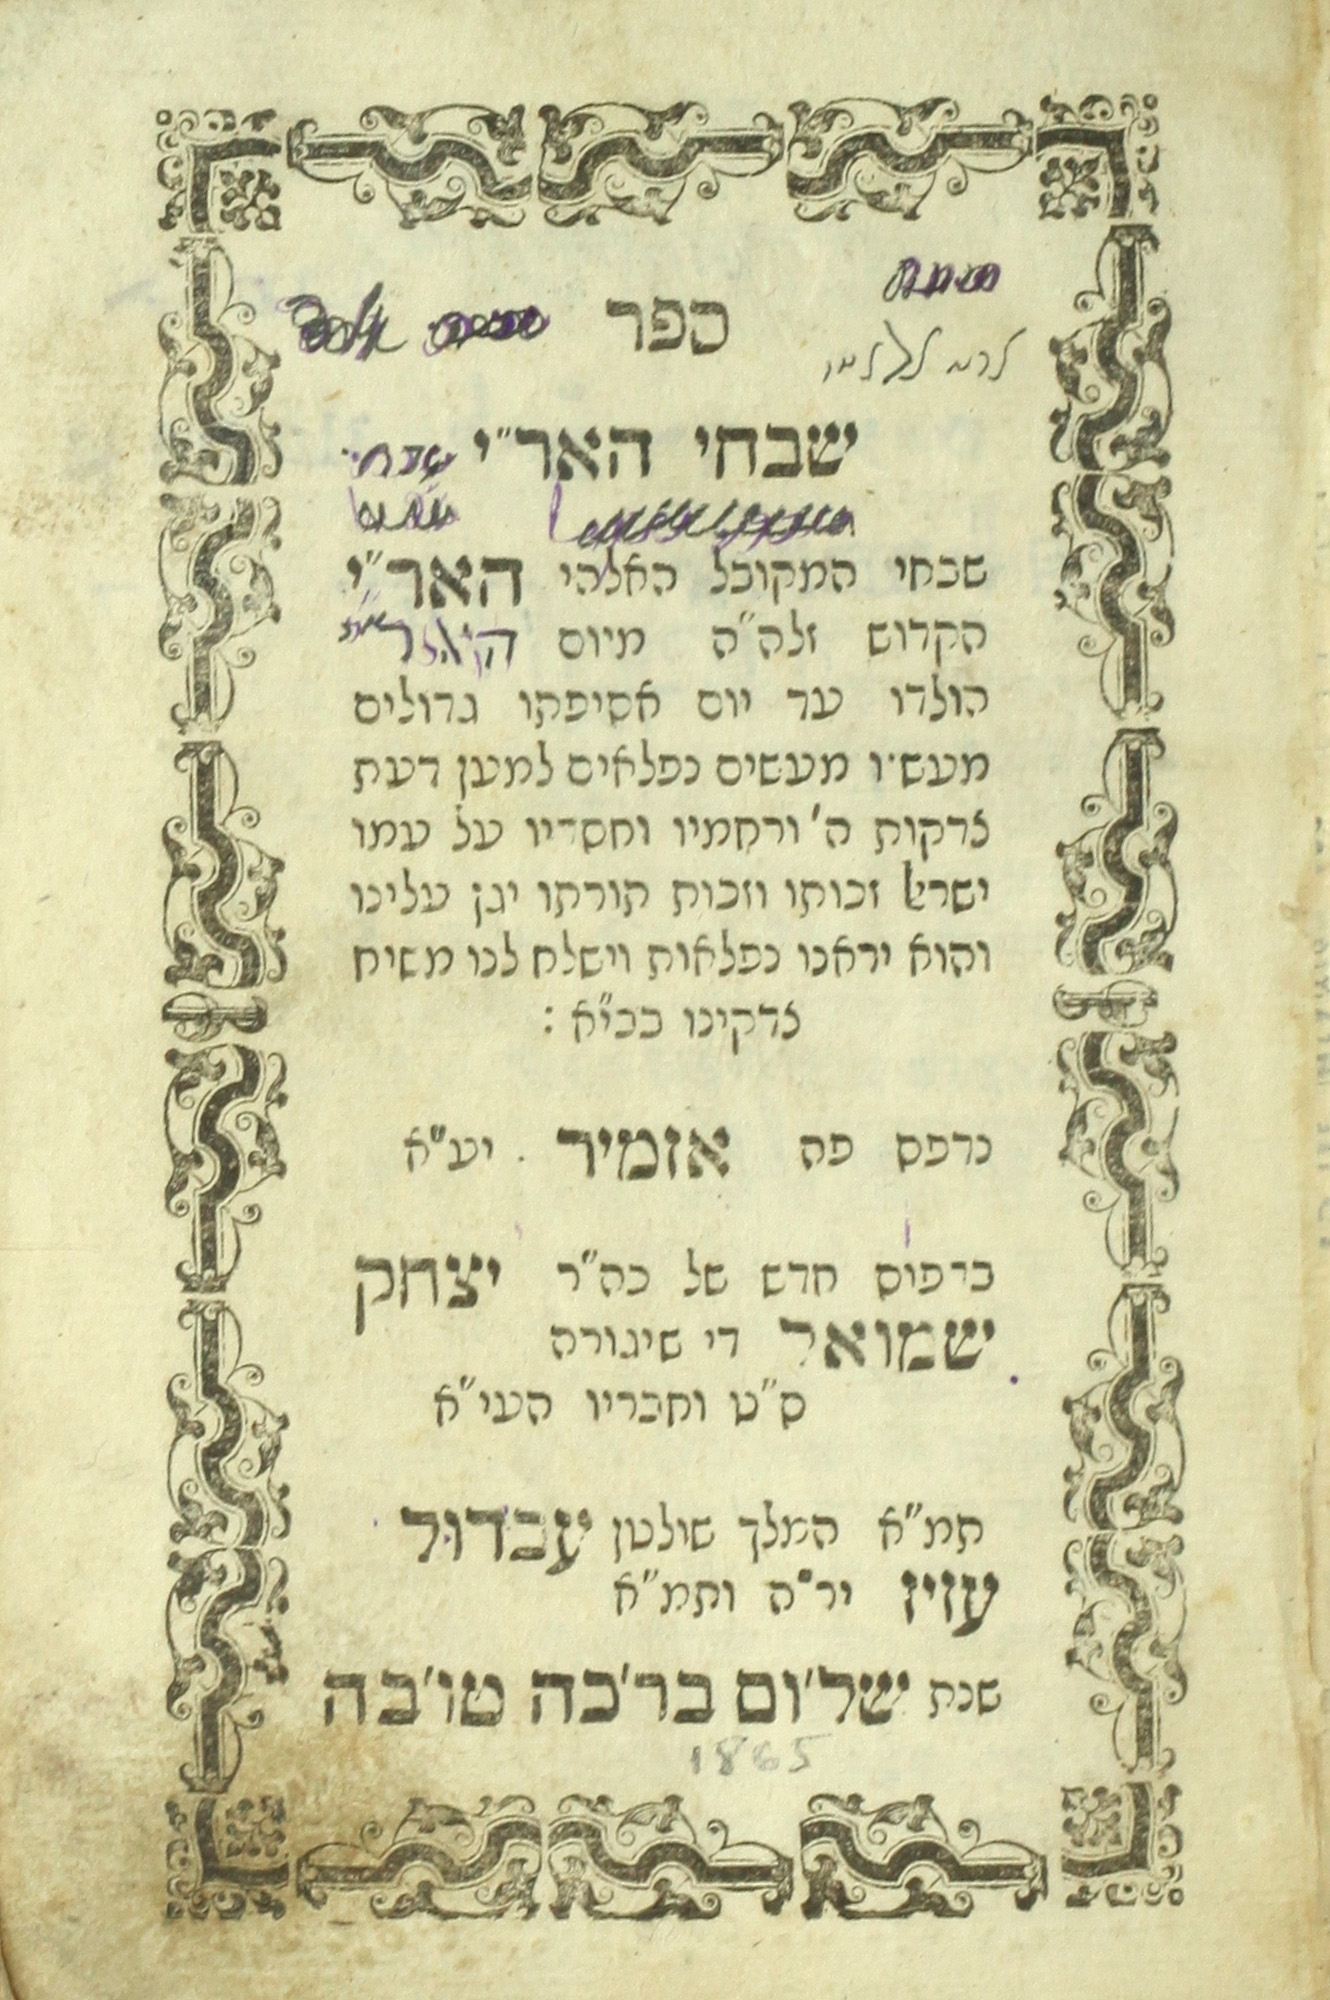 ספר
שבחי האר"י
שבחי המקובל האלהי האר"י
הקדוש זלה"ה מיום
הולדו עד יום אסיפתו גדולים
מעש'ו מעשים נפלאים למען דעת
צדקות ה' ורחמיו וחסדיו על עמו
ישראל זכותו וזכות תורתו יגן עלינו
והוא יראנו נפלאות וישלח לנו משיח
צדקינו בב"א :
נדפס פה אזמיר . יע"א
בדפוס חדש של כה"ר יצחק
ישמואל די שיגורה
ס"ט וחבריו העי"א
תמ"א המלך שולטן עבדול
עזיז יר"ה ותמ"א
שנת של'ום בר'כה טו'בה
1865